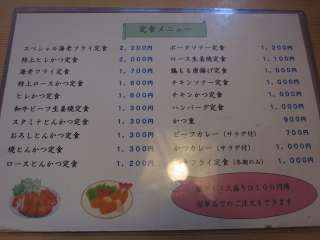 定食メニュー
スペシャル海老フライ定食 2,200円
特上ヒレかつ定食 2,000円
海老フライ定食 1,700円
特上ロースかつ定食 1,600円
ヒレかつ定食 1,600円
和牛ビーフ生姜焼定食 1,300円
スタミナとんかつ定食 1,300円
おろしとんかつ定食 1,300円
焼とんかつ定食 1,300円
ロースとんかつ定食 1,200円
ポークソテー定食 1,200円
ロース生姜焼定食 1,100円
鶏もも唐揚げ定食
チキンソテー定食
チキンかつ定食
ハンバーグ定食
かつ重 900円
ビーフカレー(サラダ付) 700円
かつカレー(サラダ付) 1,000円
フライ定食(冬期のみ) 1,200円
大盛りは100円増
単品でのご注文もできます